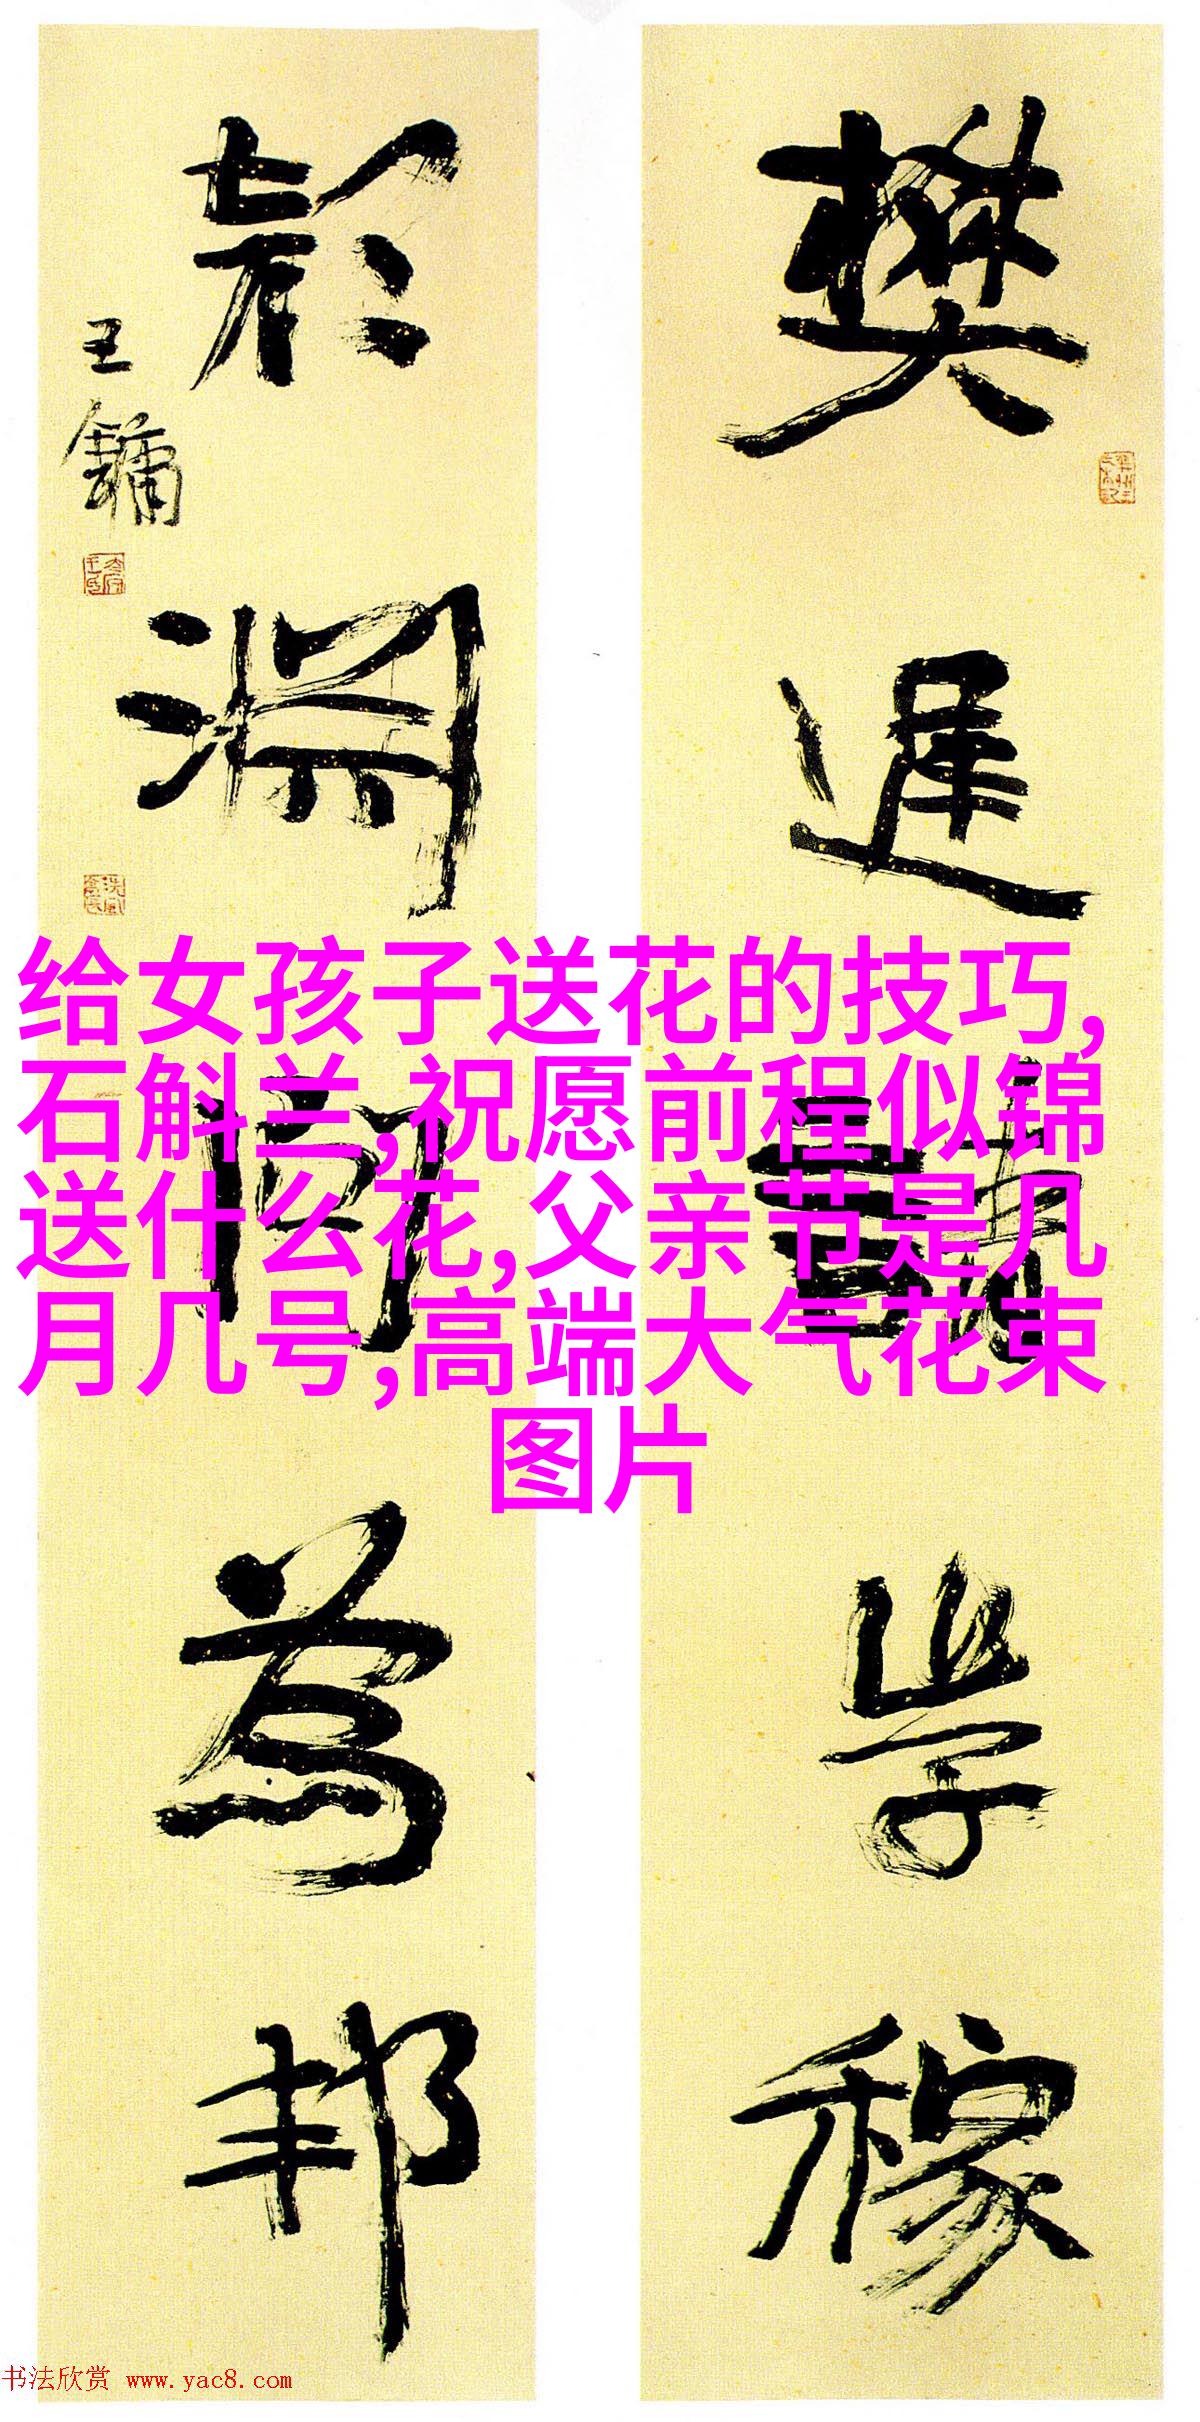 樊遲請學稼
顏淵問為邦
王鏞
给女孩子送花的技巧,
石斛兰,祝愿前程似锦
送什么花,父亲节是几
月几号,高端大气花束
图片
书法欣赏 www.yac8.com